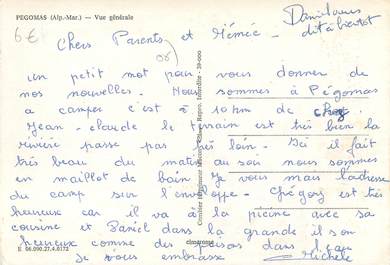 PEGOMAS (Alp.-Mar.) — Vue générale
6€
Chers Parents et Mémée -
dit à bientot
06)
un petit mot pour vous donner de
nos nouvelles. Nous sommes à Pégomas
a camper c'est à 10 km de chez
Jean-claude le terrain est très bien la
rivière passe pas très loin - Ici il fait
très beau du matin au soir nous sommes
en maillot de bain Je vous mais l'adresse
du camp sur l'enveloppe - Grégory est très
heureux car il va à la piscine avec sa
cousine et Daniel dans la grande il son
heureux comme des poissons dans l'eau
Je vous embrasse Michèle
Combier Imprimeur Mâcon
Repro. Interdites - 39-000
cimarome
E 06.090.27.4.0172